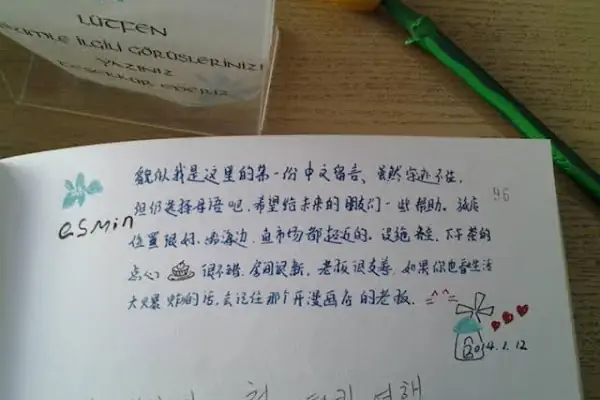 LÜTFEN
İLGİLİ GÖRÜŞLERİNİZİ
YAZINIZ
TEŞEKKÜR EDERİZ
貌似我是这里的第一份中文留言、虽然字迹不佳,
96
但仍选择母语吧,希望给未来的朋友们一些帮助。旅店
esmin
位置很好,离海边、鱼市场都挺近的。设施齐全,下午茶的
点心 很不错,房间很新,老板很友善,如果你也看生活
大爆炸的话,会记住那个开漫画店的老板. =^^=
2014.1.12
여행